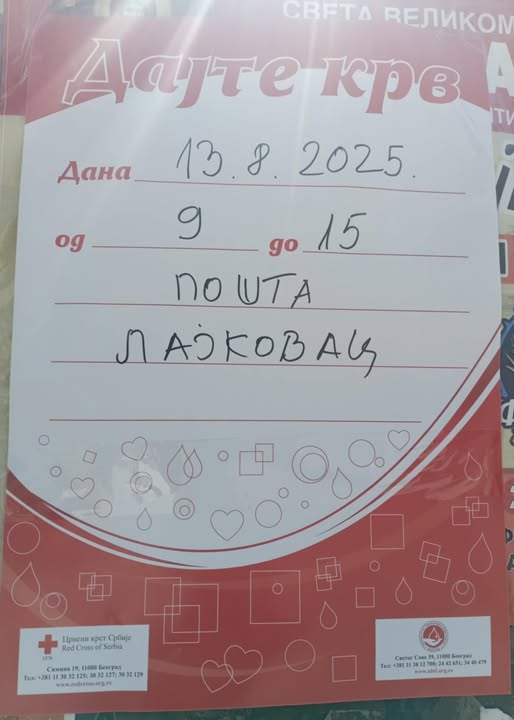 СВЕТА ВЕЛИКОМ
Дајте крв
Дана 13.8.2025.
од 9 до 15
ПОШТА
ЛАЈКОВАЦ
1876
Црвени крст Србије
Red Cross of Serbia
Симина 19, 11000 Београд
Тел: +381 11 30 32 125; 30 32 127; 30 32 129
www.redcross.org.rs
Светог Саве 39, 11000 Београд
Тел: +381 11 38 12 700; 24 42 651; 34 40 479
www.nbti.org.rs